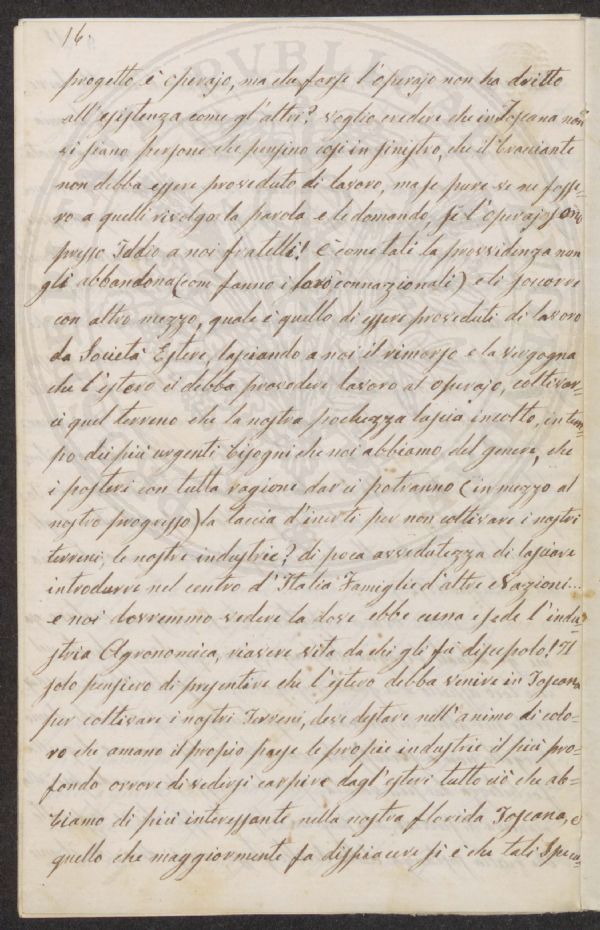 16.
progetto è Operajo, ma che forse l'operajo non ha dritto
all'esistenza come gl'altri? voglio credere che in Toscana non
vi siano persone che pensino così in sinistro, che il bracciante
non debba essere proveduto di lavoro, ma se pure ve ne fosse-
ro a quelli rivolgo la parola e le domando, se l'operajo
presso Iddio a noi fratelli! E come tali la provvidenza non
gli abbandona (com fanno i loro connazionali) e li soccorre
con altro mezzo, quale è quello di essere proveduti di lavoro
da Società Estere, lasciando a noi il rimorso e la vergogna
che l'estero ci debba provedere lavoro al operajo, coltivar-
ci quel terreno che la nostra pochezza lascia incolto, in tem-
po dei più urgenti bisogni che noi abbiamo del genere, che
i posteri con tutta ragione dar ci potranno (in mezzo al
nostro progresso) la taccia d'inerti per non coltivare i nostri
terreni, le nostre industrie? di poca avvedutezza di lasciare
introdurre nel centro d'Italia Famiglie d'altre Nazioni...
e noi dovremmo vedere la dove ebbe cuna e sede l'indu-
stria Agronomica, riavere vita da chi gli fù discepolo! Il
solo pensiero di presentire che l'estero debba venire in Toscana
per coltivare i nostri Terreni, deve destare nell'animo di colo-
ro che amano il propio paese le propie industrie il più pro-
fondo orrore di vedersi carpire dagl'esteri tutto ciò che ab-
biamo di più interessante nella nostra florida Toscana, e
quello che maggiormente fa dispiacere si è che tali Specu-